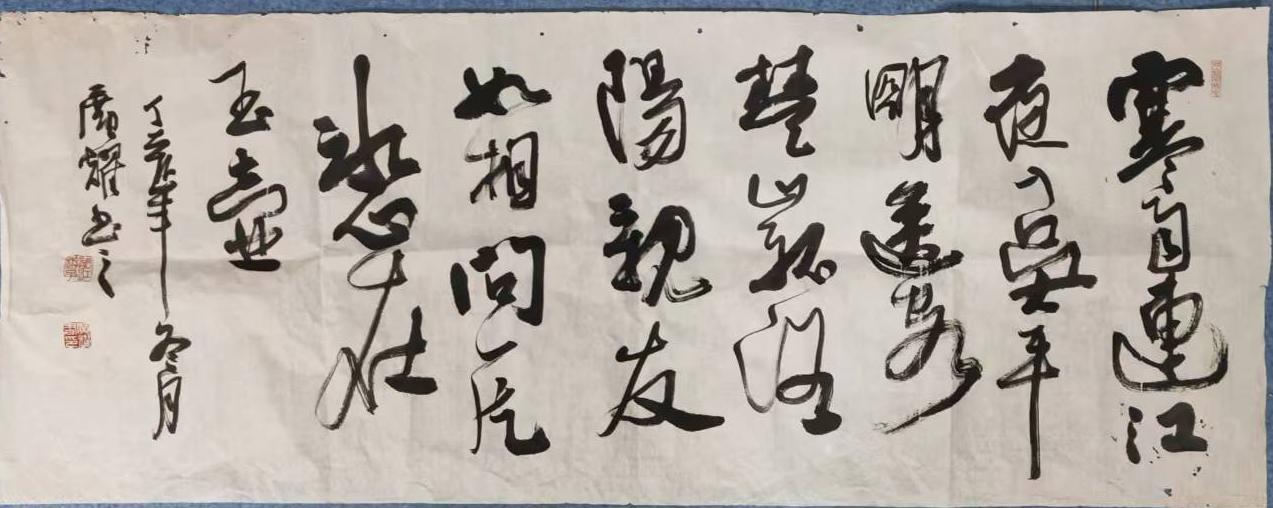 寒雨連江
夜入吳平
明送客
楚山孤洛
陽親友
如相問一片
冰心在
玉壺
丁亥年冬月
耀书之